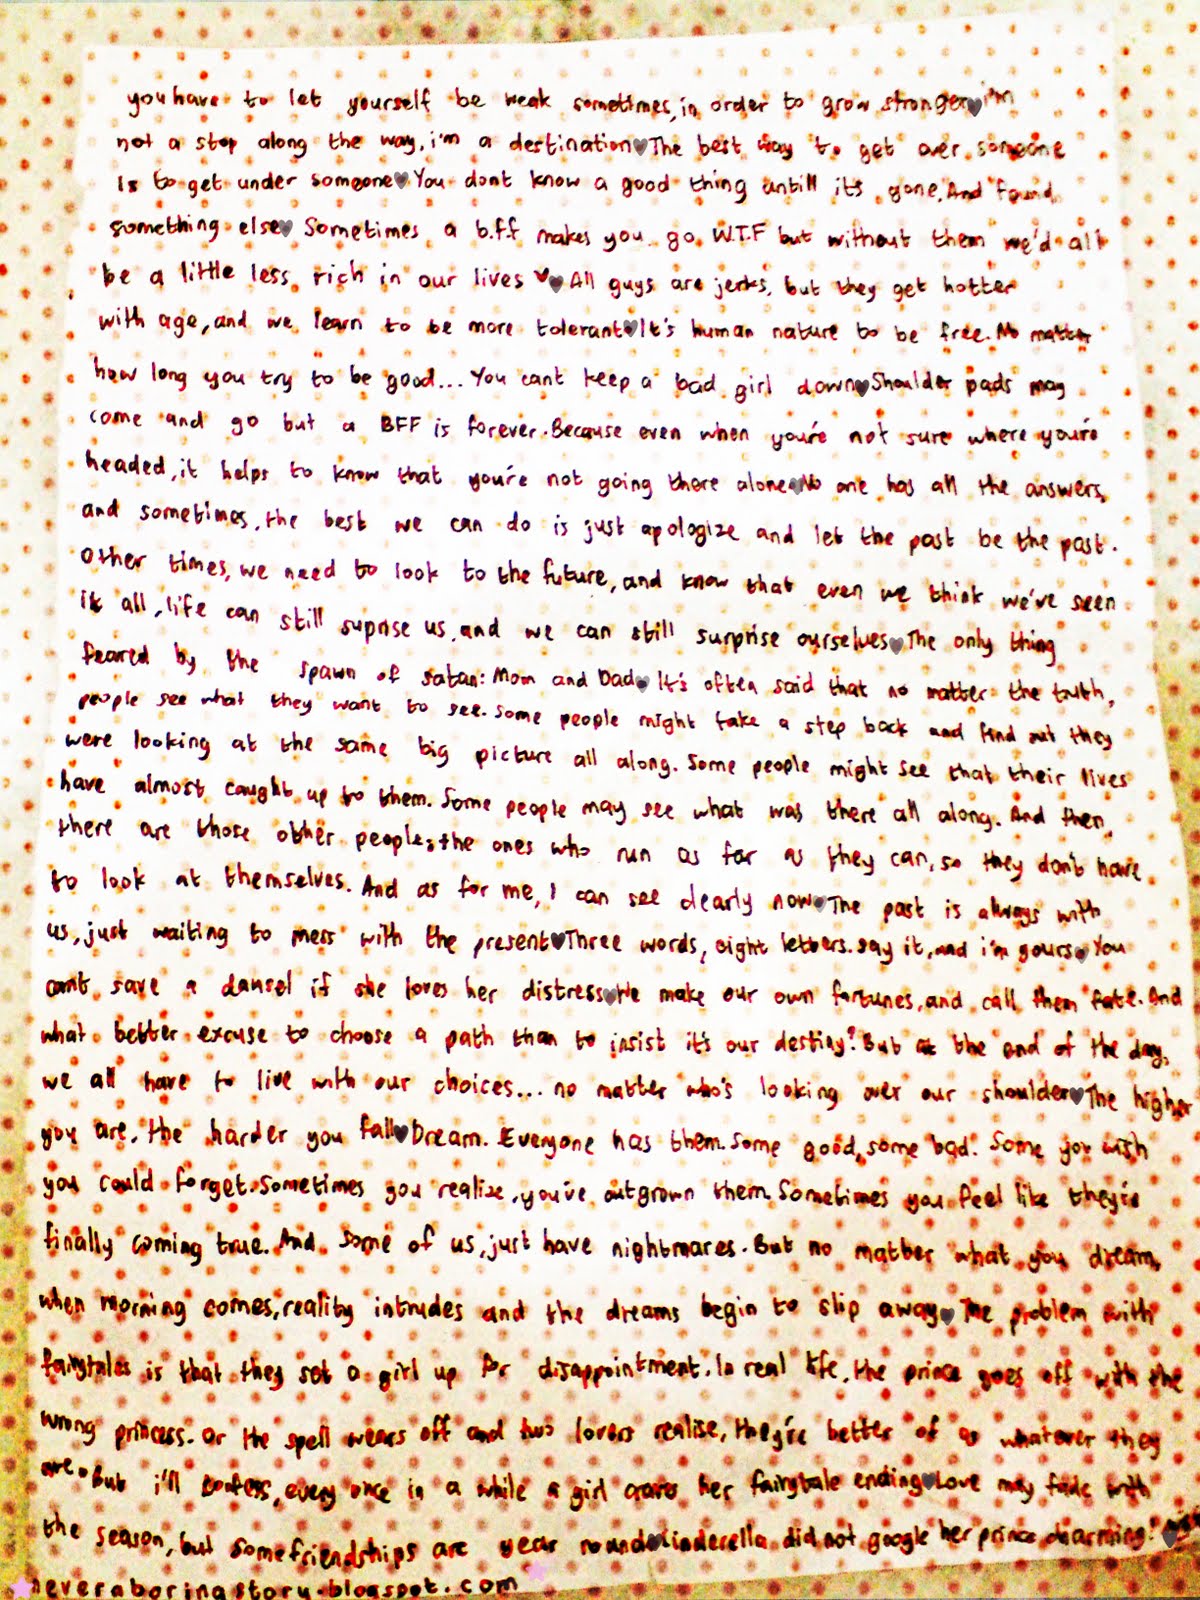 you have to let yourself be weak sometimes, in order to grow stronger♥i'm
not a stop along the way, i'm a destination♥The best way to get over someone
Is to get under someone♥You dont know a good thing untill it's gone. And found
something else♥ Sometimes a b.f.f makes you go W.T.F but without them we'd all
be a little less rich in our lives ♥♥All guys are jerks, but they get hotter
with age, and we learn to be more tolerant♥It's human nature to be free. No matter
how long you try to be good... You cant keep a bad girl down♥Shoulder pads may
come and go but a BFF is forever. Because even when you're not sure where you're
headed, it helps to know that you're not going there alone♥No one has all the answers,
and sometimes, the best we can do is just apologize and let the past be the past.
Other times, we need to look to the future, and know that even we think we've seen
it all, life can still suprise us, and we can still surprise ourselves♥The only thing
feared by the spawn of satan: Mom and Dad♥ It's often said that no matter the truth,
people see what they want to see. Some people might take a step back and find out they
were looking at the same big picture all along. Some people might see that their lives
have almost caught up to them. Some people may see what was there all along. And then,
there are those other people; the ones who run as far as they can, so they don't have
to look at themselves. And as for me, I can see clearly now♥The past is always with
us, just waiting to mess with the present♥Three words, eight letters. say it, and i'm yours♥You
cant save a damsel if she loves her distress♥We make our own fortunes, and call them fate. And
what better excuse to choose a path than to insist it's our destiny? But at the end of the day,
we all have to live with our choices... no matter who's looking over our shoulder♥The higher
you are, the harder you fall♥Dream. Everyone has them. Some good, some bad. Some you wish
you could forget. Sometimes you realize, you've outgrown them. Sometimes you feel like they're
finally coming true. And some of us, just have nightmares. But no matter what you dream,
when morning comes, reality intrudes and the dreams begin to slip away♥The problem with
fairytales is that they set a girl up for disappointment. In real life, the prince goes off with the
wrong princess. Or the spell wears off and two lovers realise, they're better of as whatever they
are. But i'll confess, every once in a while a girl craves her fairytale ending♥Love may fade with
the season, but some friendships are year round♥Cinderella did not google her prince charming!♥
neveraboringstory.blogspot.com